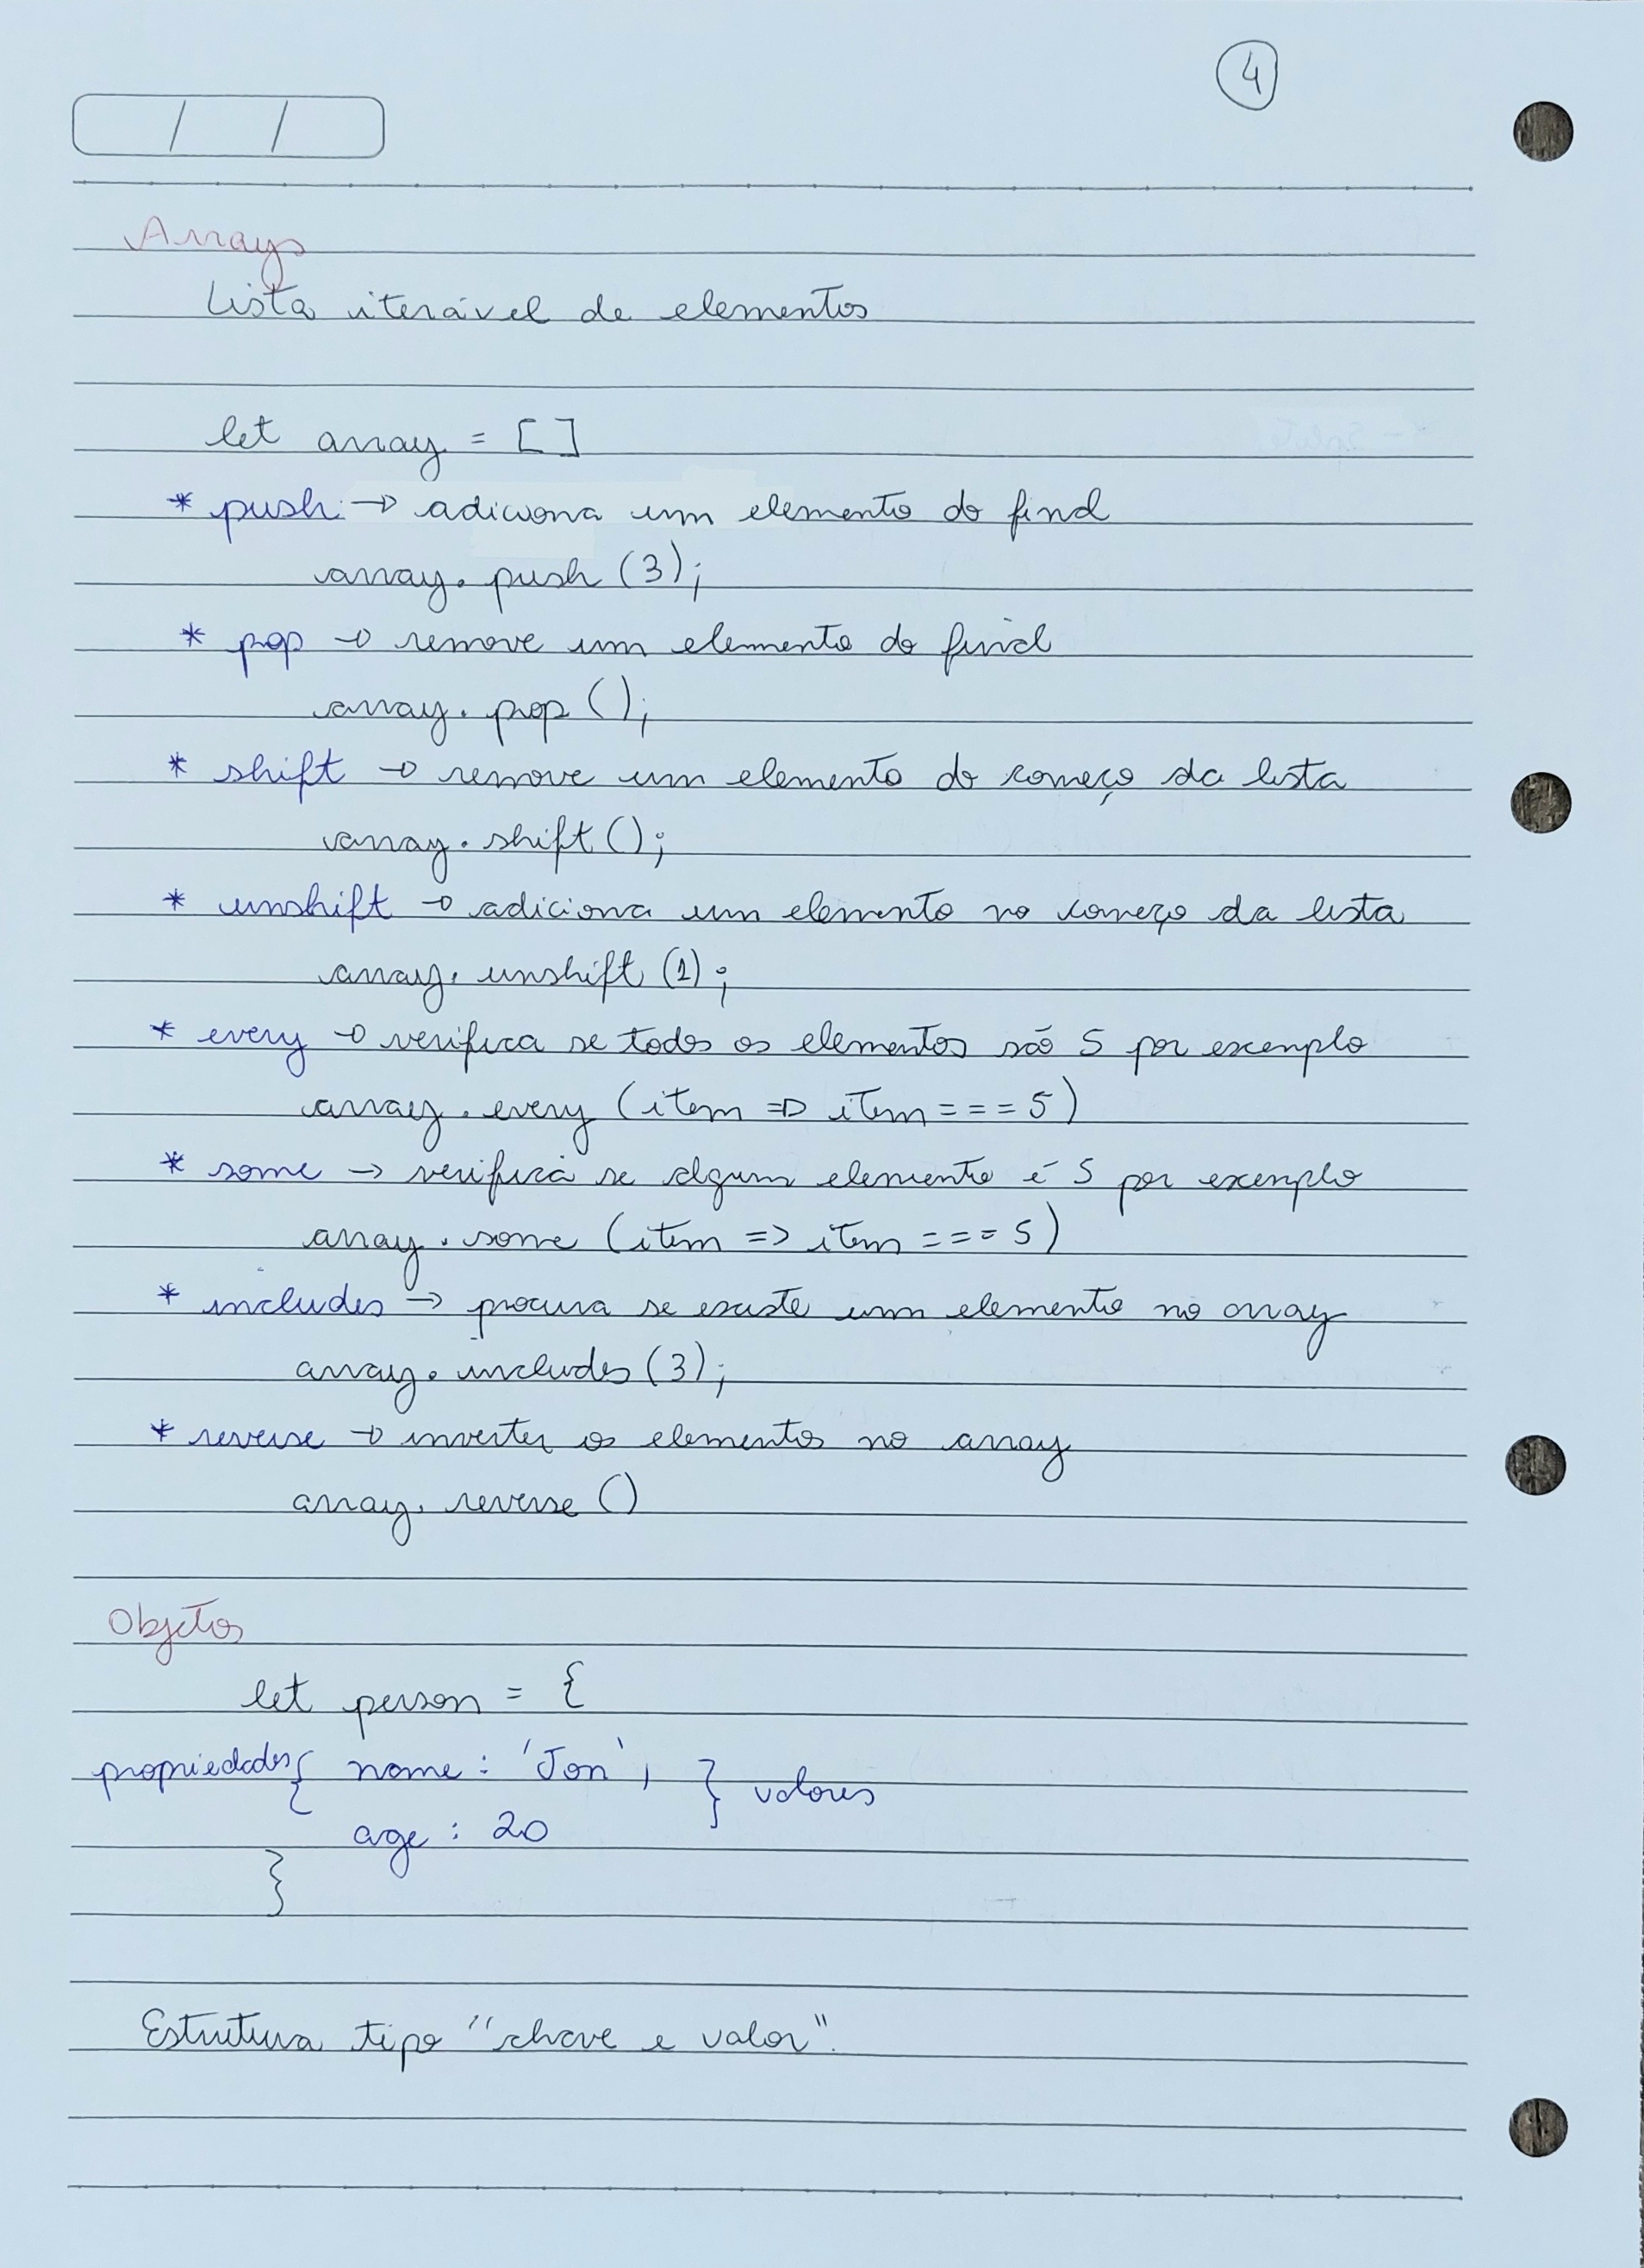 4
/ /
Arrays
Lista iterável de elementos
let array = []
* push → adiciona um elemento do final
array.push(3);
* pop → remove um elemento do final
array.pop();
* shift → remove um elemento do começo da lista
array.shift();
* unshift → adiciona um elemento no começo da lista
array.unshift(1);
* every → verifica se todos os elementos são 5 por exemplo
array.every(item => item === 5)
* some → verifica se algum elemento é 5 por exemplo
array.some(item => item === 5)
* includes → procura se existe um elemento no array
array.includes(3);
* reverse → inverter os elementos no array
array.reverse()
Objetos
let person = {
propriedades { nome: 'Jon', } valores
age: 20
}
Estrutura tipo "chave e valor".